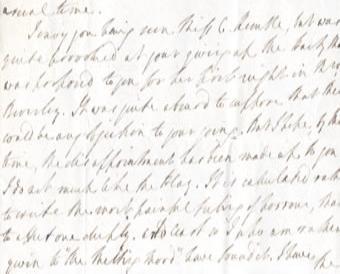 usual time.
I envy you having seen Miss C. Kemble, but was
quite provoked at your giving up the party that
was proposed to you for her first night in Mrs
Beverley. It was quite absurd to suppose that there
could be any objection to your going. But I hope, by this
time, the disappointment has been made up to you
I do not much like the Play. It is calculated rather
to excite the most painful feelings of horrour, than
to affect one deeply. at least I who am rather
given to the "melting mood" have found it. I have